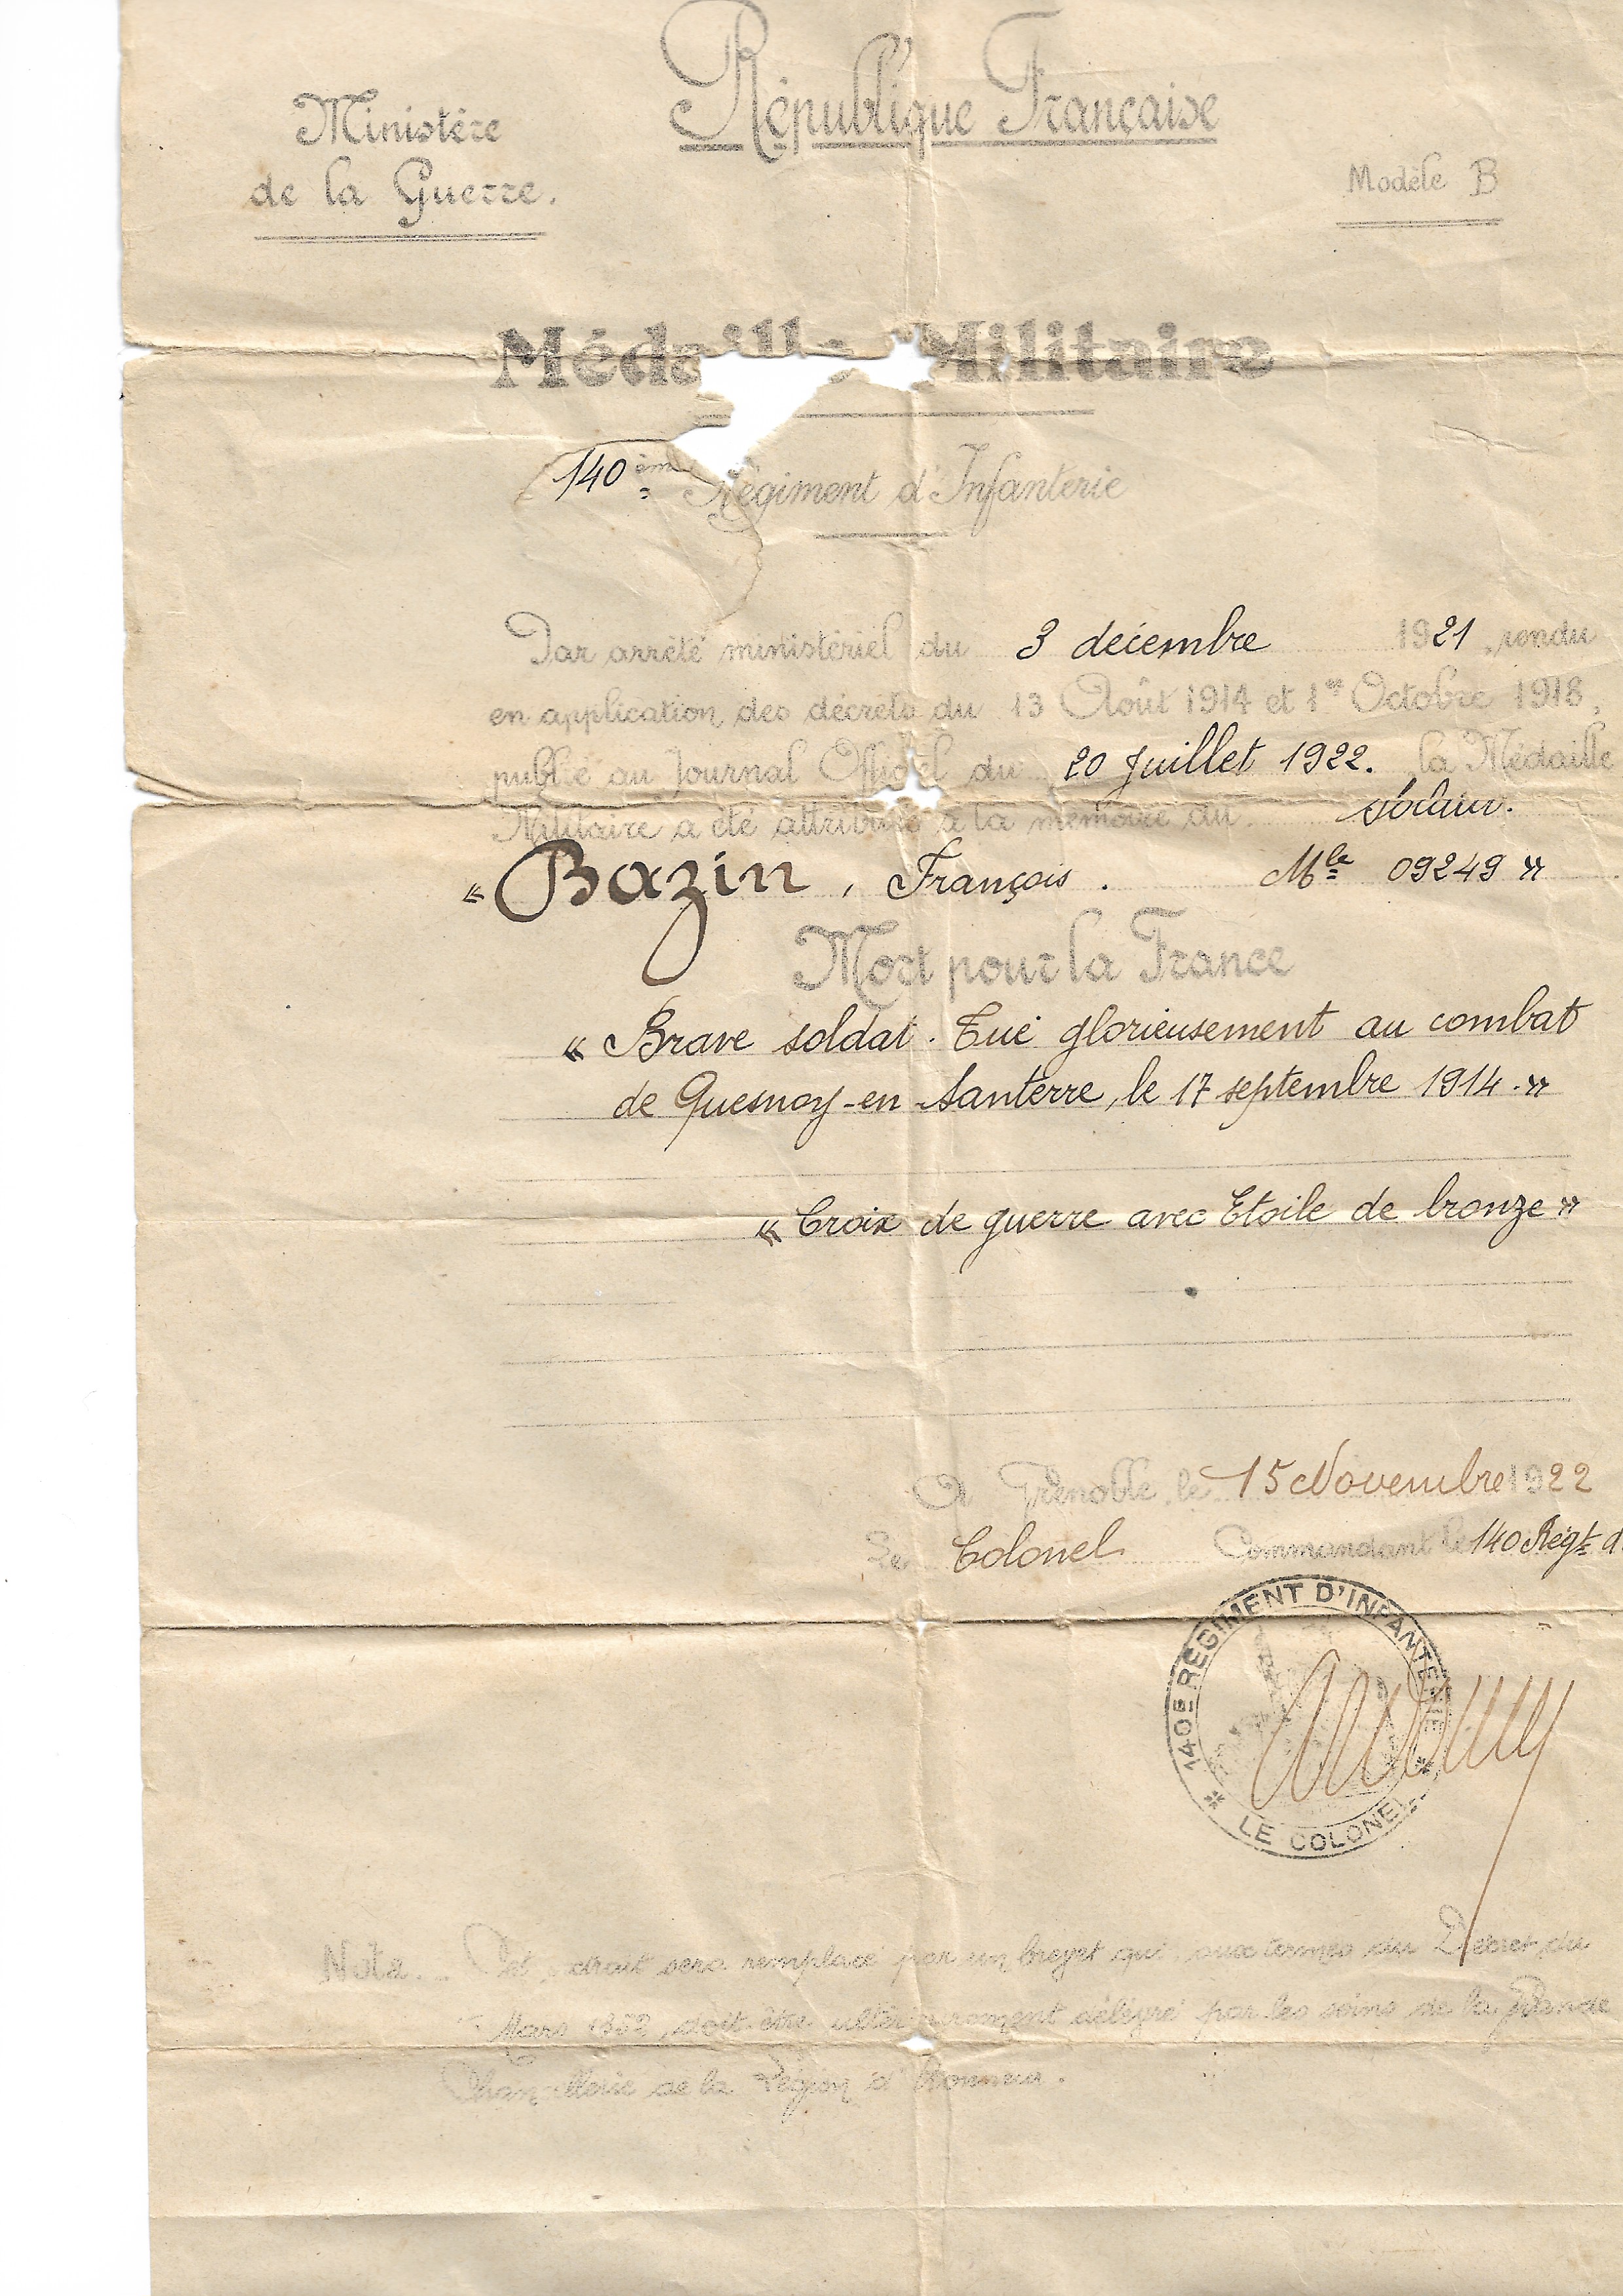 République Française
Ministère
de la Guerre.
Modèle B
Médaille Militaire
140ème Régiment d'Infanterie
Par arrêté ministériel du 3 décembre 1921, rendu
en application des décrets du 13 Août 1914 et 1er Octobre 1918,
publié au Journal Officiel du 20 Juillet 1922. la Médaille
Militaire a été attribuée à la mémoire du soldat.
« Bazin, François. Mle 09249 »
Mort pour la France
« Brave soldat. Tué glorieusement au combat
de Quesnoy-en-Santerre, le 17 septembre 1914. »
« Croix de guerre avec Etoile de bronze »
A Grenoble, le 15 Novembre 1922
Le Colonel Commandant le 140 Régt d
140E REGIMENT D'INFANTERIE
* LE COLONEL *
Nota. Cet extrait sera remplacé par un brevet qui, aux termes du Décret du
Mars 1852, doit être ultérieurement délivré par les soins de la Grande
Chancellerie de la Légion d'Honneur.